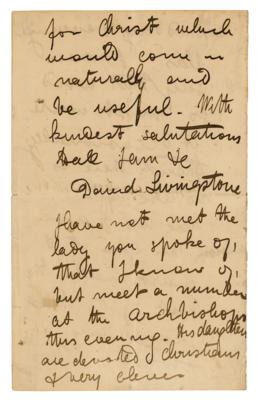 for Christ which
would come in
naturally and
be useful. With
kindest salutations
I am &c
David Livingstone
I have not met the
lady you spoke of,
that I know of,
but meet a number
at the Archbishops
this evening. His daughters
are devoted Christians
& very clever